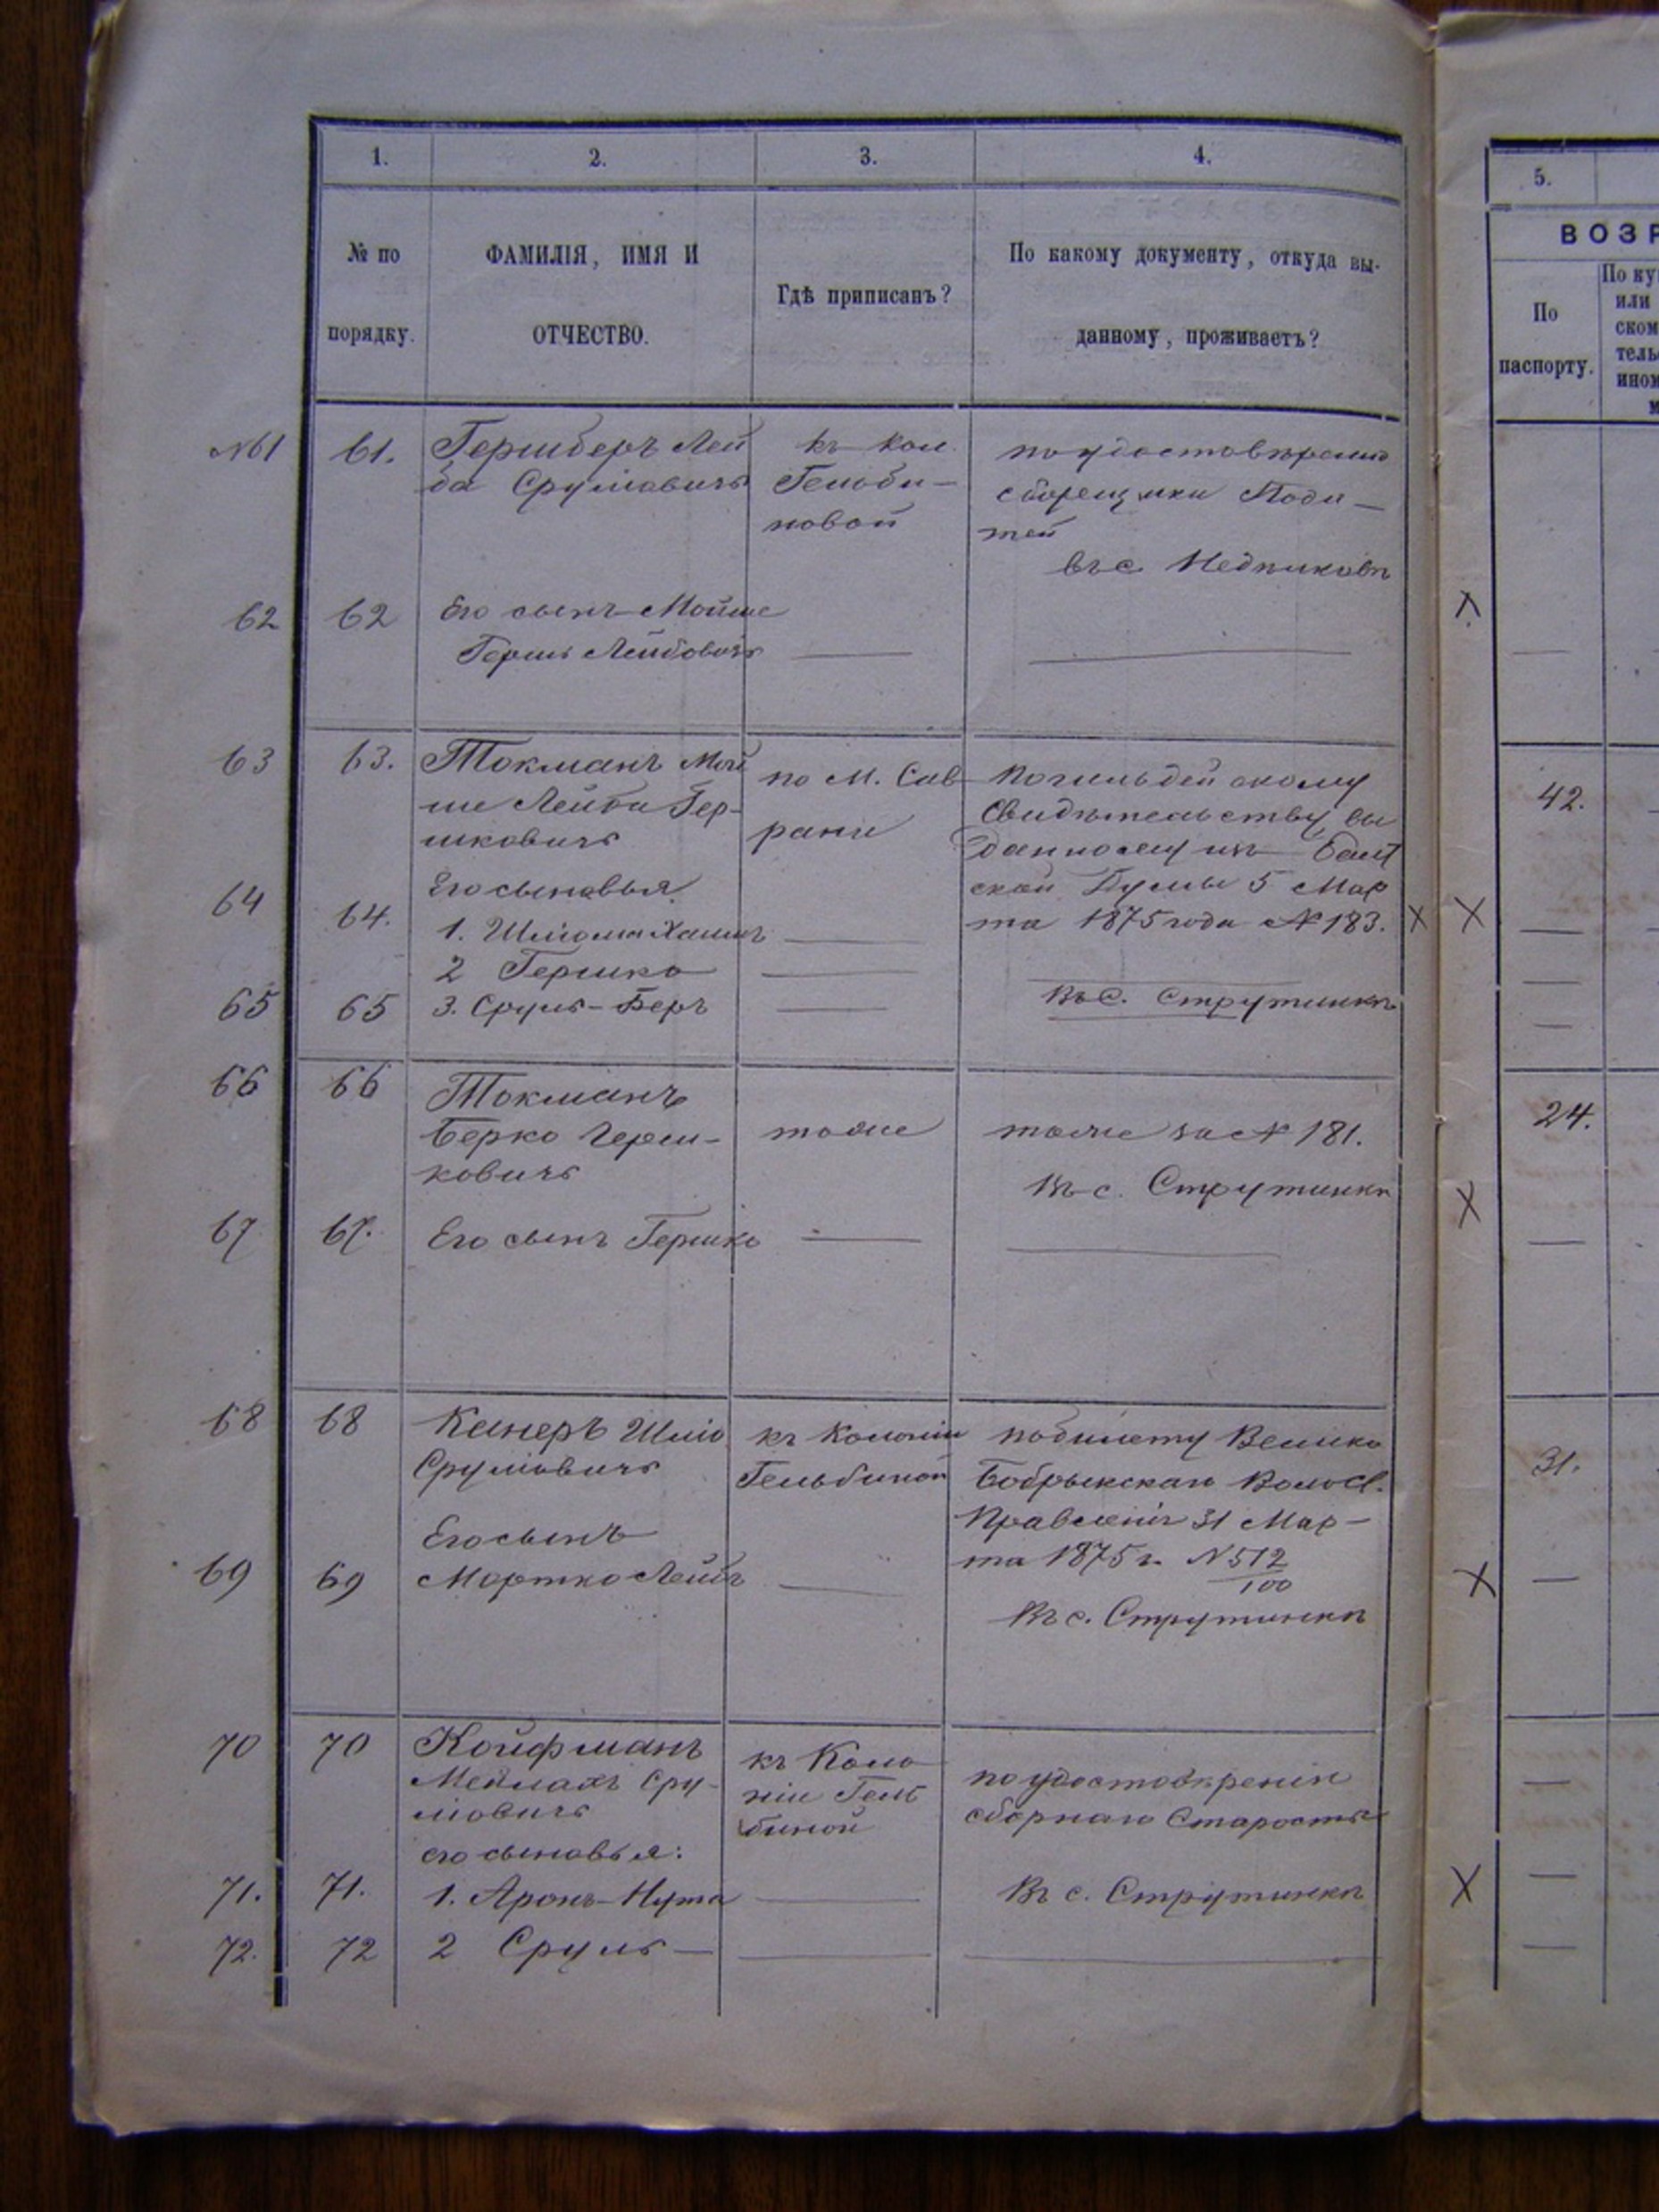 1. 2. 3. 4.
№ по порядку.
ФАМИЛІЯ, ИМЯ И
ОТЧЕСТВО.
Гдѣ приписанъ?
По какому документу, откуда вы-
данному, проживаетъ?
№61 61. Гершберъ Лей
ба Срулiовичъ
къ Кол.
Гельби-
новой
по удостовѣренію
сборщика Пода-
тей
въ с. Медниковѣ
62 62 Его сынъ Мойше
Гершъ Лейбовичъ
63 63. Токманъ Мой
ше Лейба Гер-
шковичъ
по М. Сав
рани
По гильдейскому
Свидѣтельству, вы
данному изъ Балт
ской Думы 5 Мар
та 1875 года № 183.
Его сыновья
64 64. 1. Шлiома Хаимъ
2 Гершко
65 65 3. Сруль-Беръ
Въ с. Струтинкѣ
66 66 Токманъ
Берко Герш-
ковичъ
тоже
тоже за № 181.
Въ с. Струтинкѣ
67 67. Его сынъ Гершко
68 68 Кенеръ Шлiо
Срулiовичъ
къ Колоніи
Гельбиной
по билету Велико
Бобрыкскаго Волост.
Правленія 31 Мар-
та 1875 г. № 512
100
Въ с. Струтинкѣ
Его сынъ
69 69 Мортко Лейбъ
70 70 Койфманъ
Мейлахъ Сру-
лiовичъ
къ Коло
ніи Гель
биной
по удостовѣренію
сборнаго Старосты
его сыновья:
71. 71. 1. Аронъ-Нута
Въ с. Струтинкѣ
72. 72 2 Сруль
5.
ВОЗР
По
паспорту.
По ку
или
ском
тель
ином
42.
24.
31.